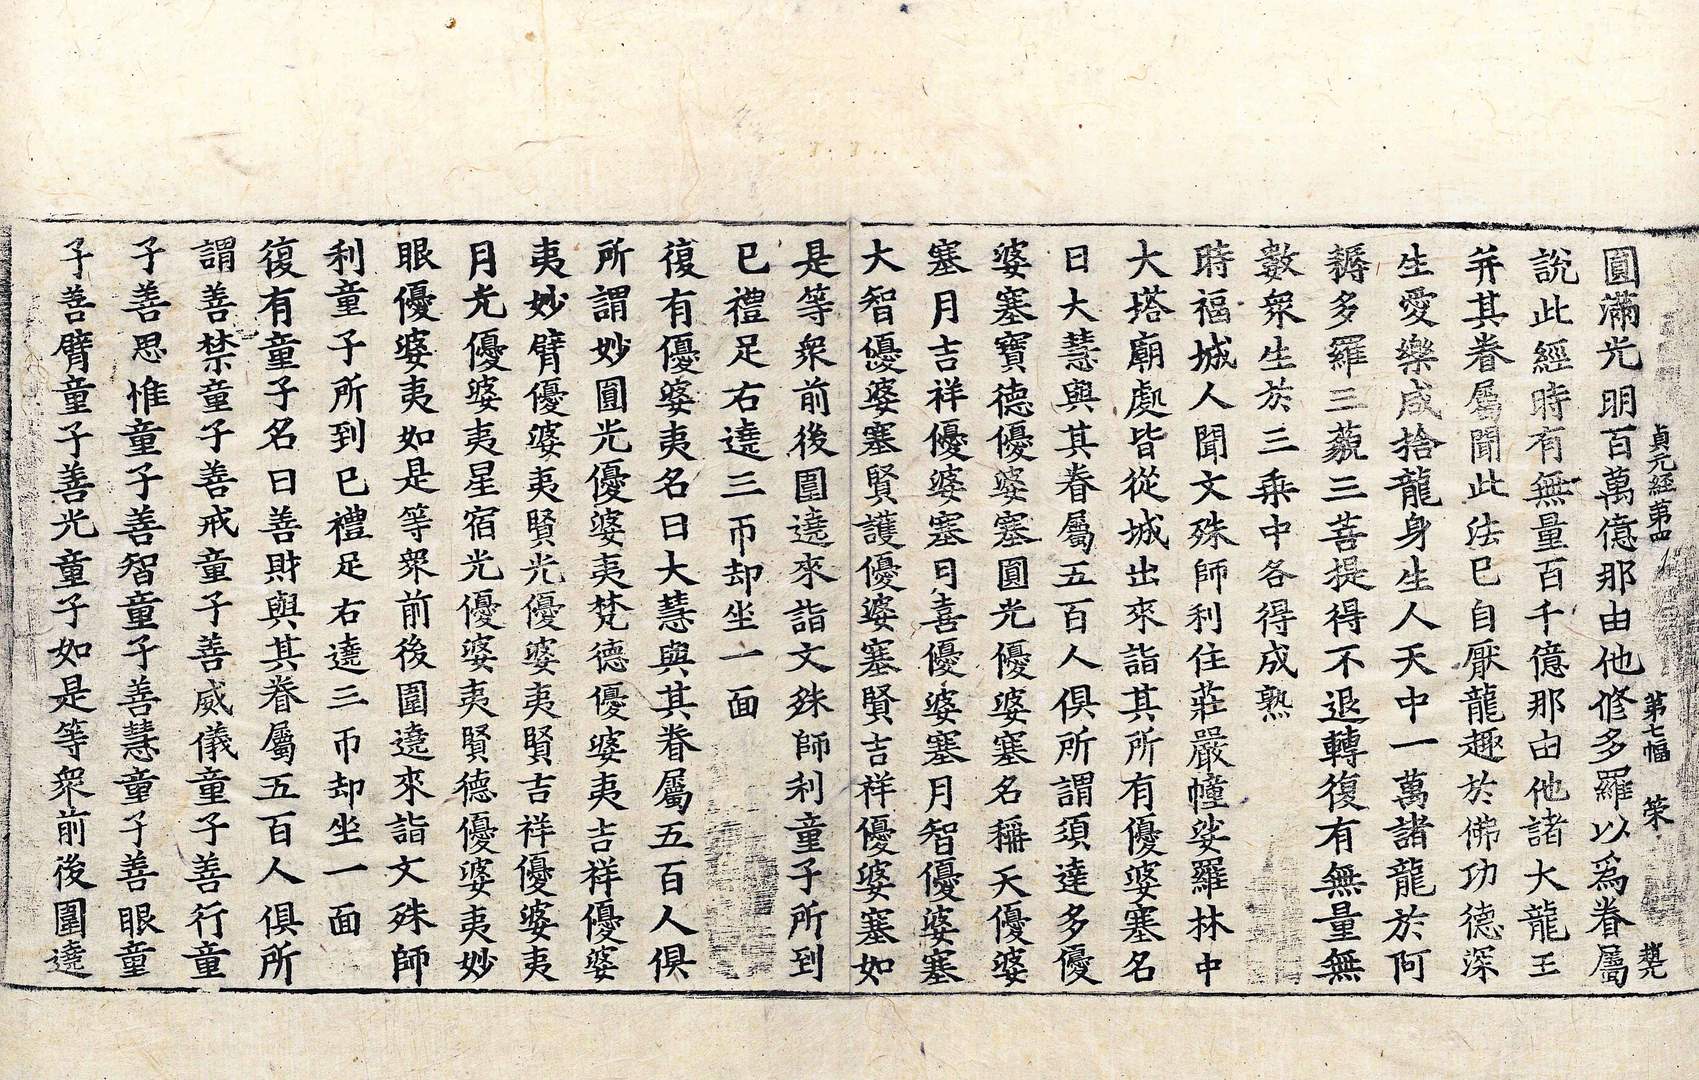 貞元經第四 第七幅 荣
圓滿光明百萬億那由他修多羅以爲眷屬
說此經時有無量百千億那由他諸大龍王
并其眷屬聞此法已自厭龍趣於佛功德深
生愛樂咸捨龍身生人天中一萬諸龍於阿
耨多羅三藐三菩提得不退轉復有無量無
數衆生於三乘中各得成熟
時福城人聞文殊師利住莊嚴幢娑羅林中
大塔廟處皆從城出來詣其所有優婆塞名
曰大慧與其眷屬五百人俱所謂須達多優
婆塞寶德優婆塞圓光優婆塞名稱天優婆
塞月吉祥優婆塞日喜優婆塞月智優婆塞
大智優婆塞賢護優婆塞賢吉祥優婆塞如
是等衆前後圍遶來詣文殊師利童子所到
已禮足右遶三帀却坐一面
復有優婆夷名曰大慧與其眷屬五百人俱
所謂妙圓光優婆夷梵德優婆夷吉祥優婆
夷妙臂優婆夷賢光優婆夷賢吉祥優婆夷
月光優婆夷星宿光優婆夷賢德優婆夷妙
眼優婆夷如是等衆前後圍遶來詣文殊師
利童子所到已禮足右遶三帀却坐一面
復有童子名曰善財與其眷屬五百人俱所
謂善禁童子善戒童子善威儀童子善行童
子善思惟童子善智童子善慧童子善眼童
子善臂童子善光童子如是等衆前後圍遶